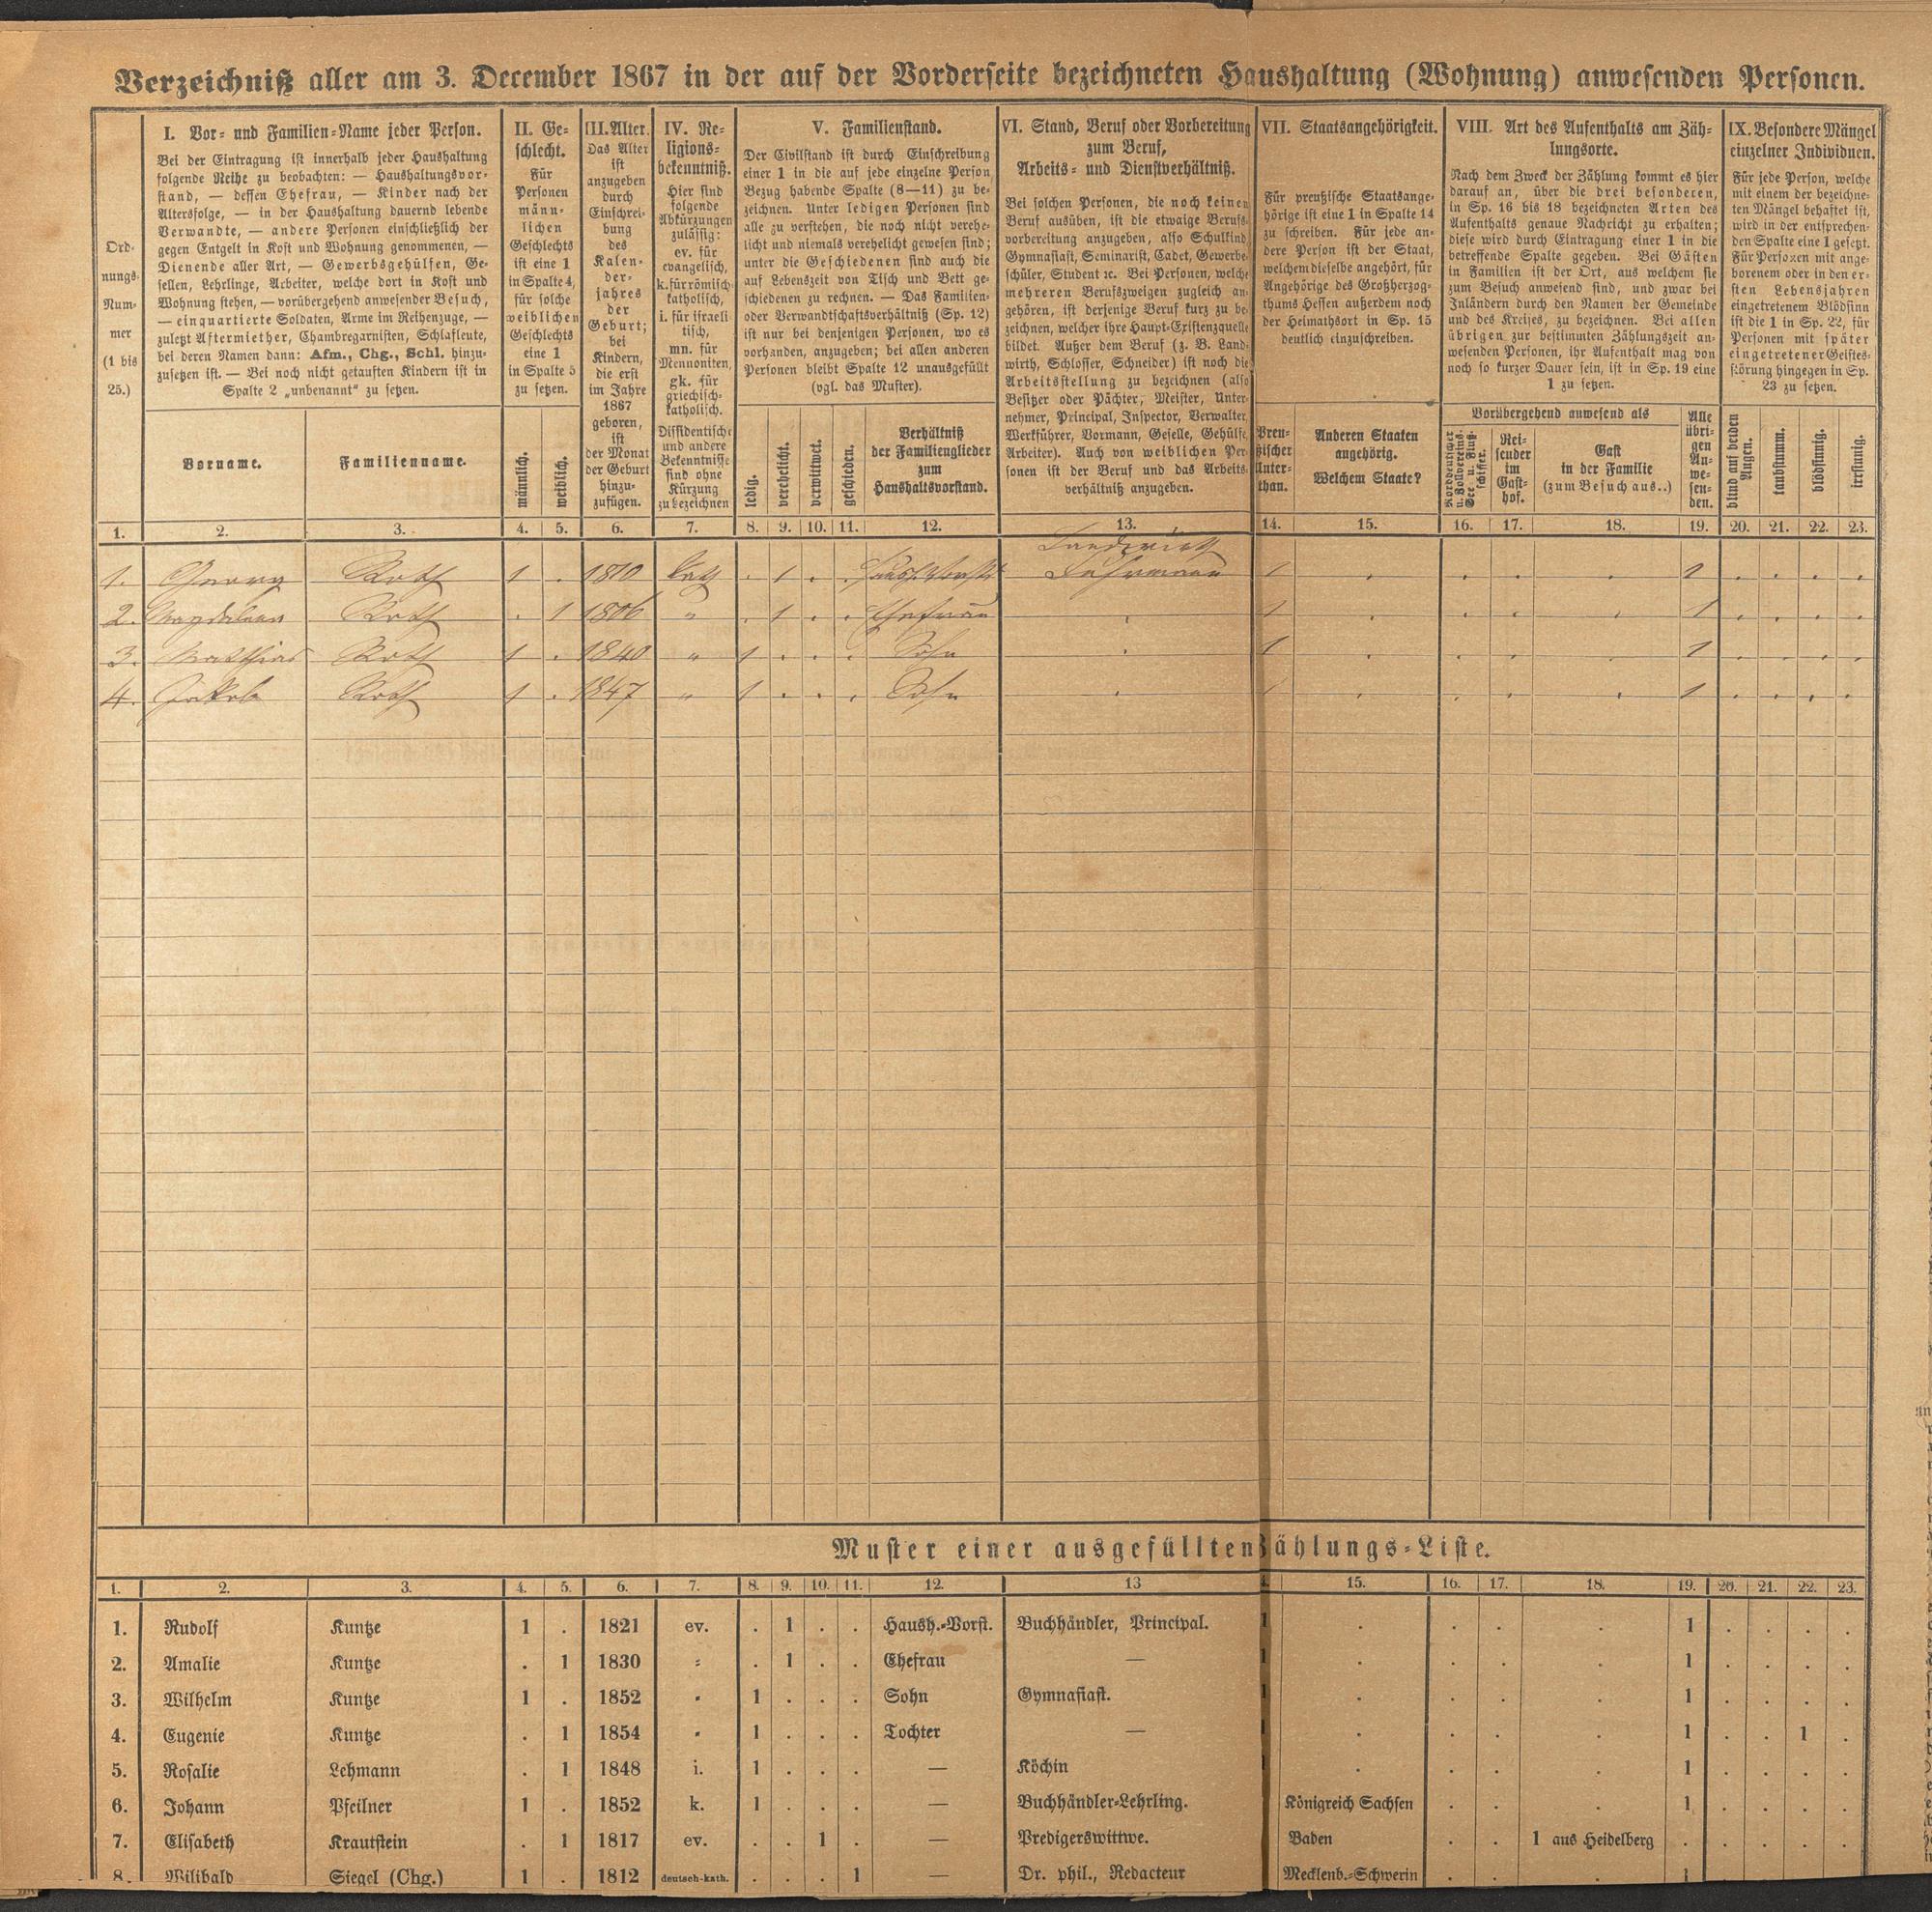 Verzeichniß aller am 3. December 1867 in der auf der Vorderseite bezeichneten Haushaltung (Wohnung) anwesenden Personen.
Ord-
nungs-
Num-
mer
(1 bis
25.)
I. Vor- und Familien-Name jeder Person.
Bei der Eintragung ist innerhalb jeder Haushaltung
folgende Reihe zu beobachten: — Haushaltungsvor-
stand, — dessen Ehefrau, — Kinder nach der
Altersfolge, — in der Haushaltung dauernd lebende
Verwandte, — andere Personen einschließlich der
gegen Entgelt in Kost und Wohnung genommenen, —
Dienende aller Art, — Gewerbsgehülfen, Ge-
sellen, Lehrlinge, Arbeiter, welche dort in Kost und
Wohnung stehen, — vorübergehend anwesender Besuch,
— einquartierte Soldaten, Arme im Reihenzuge, —
zuletzt Aftermiether, Chambregarnisten, Schlafleute,
bei deren Namen dann: Afm., Chg., Schl. hinzu-
zusetzen ist. — Bei noch nicht getauften Kindern ist in
Spalte 2 „unbenannt“ zu setzen.
Vorname.
Familienname.
II. Ge-
schlecht.
Für
Personen
männ-
lichen
Geschlechts
ist eine 1
in Spalte 4,
für solche
weiblichen
Geschlechts
eine 1
in Spalte 5
zu setzen.
männlich.
weiblich.
III. Alter.
Das Alter
ist
anzugeben
durch
Einschrei-
bung
des
Kalen-
der-
jahres
der
Geburt;
bei
Kindern,
die erst
im Jahre
1867
geboren,
ist
der Monat
der Geburt
hinzu-
zufügen.
IV. Re-
ligions-
bekenntniß.
Hier sind
folgende
Abkürzungen
zulässig:
ev. für
evangelisch,
k. für römisch-
katholisch,
i. für israeli-
tisch,
mn. für
Mennoniten,
gk. für
griechisch-
katholisch.
Dissidentische
und andere
Bekenntnisse
sind ohne
Kürzung
zu bezeichnen
V. Familienstand.
Der Civilstand ist durch Einschreibung
einer 1 in die auf jede einzelne Person
Bezug habende Spalte (8—11) zu be-
zeichnen. Unter ledigen Personen sind
alle zu verstehen, die noch nicht verehe-
licht und niemals verehelicht gewesen sind;
unter die Geschiedenen sind auch die
auf Lebenszeit von Tisch und Bett ge-
schiedenen zu rechnen. — Das Familien-
oder Verwandtschaftsverhältniß (Sp. 12)
ist nur bei denjenigen Personen, wo es
vorhanden, anzugeben; bei allen anderen
Personen bleibt Spalte 12 unausgefüllt
(vgl. das Muster).
ledig.
verehelicht.
verwittwet.
geschieden.
Verhältniß
der Familienglieder
zum
Haushaltsvorstand.
VI. Stand, Beruf oder Vorbereitung
zum Beruf,
Arbeits- und Dienstverhältniß.
Bei solchen Personen, die noch keinen
Beruf ausüben, ist die etwaige Berufs-
vorbereitung anzugeben, also Schulkind,
Gymnasiast, Seminarist, Cadet, Gewerbe-
schüler, Student ꝛc. Bei Personen, welche
mehreren Berufszweigen zugleich an-
gehören, ist derjenige Beruf kurz zu be-
zeichnen, welcher ihre Haupt-Existenzquelle
bildet. Außer dem Beruf (z. B. Land-
wirth, Schlosser, Schneider) ist noch die
Arbeitsstellung zu bezeichnen (also
Besitzer oder Pächter; Meister, Unter-
nehmer, Principal, Inspector, Verwalter,
Werkführer, Vormann, Geselle, Gehülfe,
Arbeiter). Auch von weiblichen Per-
sonen ist der Beruf und das Arbeits-
verhältniß anzugeben.
VII. Staatsangehörigkeit.
Für preußische Staatsange-
hörige ist eine 1 in Spalte 14
zu schreiben. Für jede an-
dere Person ist der Staat,
welchem dieselbe angehört, für
Angehörige des Großherzog-
thums Hessen außerdem noch
der Heimathsort in Sp. 15
deutlich einzuschreiben.
Preu-
ßischer
Unter-
than.
Anderen Staaten
angehörig.
Welchem Staate?
VIII. Art des Aufenthalts am Zäh-
lungsorte.
Nach dem Zweck der Zählung kommt es hier
darauf an, über die drei besonderen,
in Sp. 16 bis 18 bezeichneten Arten des
Aufenthalts genaue Nachricht zu erhalten;
diese wird durch Eintragung einer 1 in die
betreffende Spalte gegeben. Bei Gästen
in Familien ist der Ort, aus welchem sie
zum Besuch anwesend sind, und zwar bei
Inländern durch den Namen der Gemeinde
und des Kreises, zu bezeichnen. Bei allen
übrigen zur bestimmten Zählungszeit an-
wesenden Personen, ihr Aufenthalt mag von
noch so kurzer Dauer sein, ist in Sp. 19 eine
1 zu setzen.
Vorübergehend anwesend als
Norddeutscher
u. Zollvereins-
See- u. Fluß-
schiffer.
Rei-
sender
im
Gast-
hof.
Gast
in der Familie
(zum Besuch aus..)
Alle
übri-
gen
An-
we-
sen-
den.
IX. Besondere Mängel
einzelner Individuen.
Für jede Person, welche
mit einem der bezeichne-
ten Mängel behaftet ist,
wird in der entsprechen-
den Spalte eine 1 gesetzt.
Für Personen mit ange-
borenem oder in den er-
sten Lebensjahren
eingetretenem Blödsinn
ist die 1 in Sp. 22, für
Personen mit später
eingetretener Geistes-
störung hingegen in Sp.
23 zu setzen.
blind auf beiden
Augen.
taubstumm.
blödsinnig.
irrsinnig.
1. 2. 3. 4. 5. 6. 7. 8. 9. 10. 11. 12. 13. 14. 15. 16. 17. 18. 19. 20. 21. 22. 23.
Landwirth
1. Georg Roth 1 . 1810 kath . 1 . . Haush. Vorst. Fuhrmann 1 . . . . 1 . . . .
2. Magdalena Roth . 1 1806 " . 1 . . Ehefrau . 1 . . . . 1 . . . .
3. Matthias Roth 1 . 1840 " 1 . . . Sohn . 1 . . . . 1 . . . .
4. Jakob Roth 1 . 1847 " 1 . . . Sohn . 1 . . . . 1 . . . .
Muster einer ausgefüllten Zählungs-Liste.
1. 2. 3. 4. 5. 6. 7. 8. 9. 10. 11. 12. 13 15. 16. 17. 18. 19. 20. 21. 22. 23.
1. Rudolf Kuntze 1 . 1821 ev. . 1 . . Haush.-Vorst. Buchhändler, Principal. 1 . . . . 1 . . . .
2. Amalie Kuntze . 1 1830 " . 1 . . Ehefrau — 1 . . . . 1 . . . .
3. Wilhelm Kuntze 1 . 1852 " 1 . . . Sohn Gymnasiast. 1 . . . . 1 . . . .
4. Eugenie Kuntze . 1 1854 " 1 . . . Tochter — 1 . . . . 1 . . 1 .
5. Rosalie Lehmann . 1 1848 i. 1 . . . — Köchin 1 . . . . 1 . . . .
6. Johann Pfeilner 1 . 1852 k. 1 . . . — Buchhändler-Lehrling. Königreich Sachsen . . . 1 . . . .
7. Elisabeth Krautstein . 1 1817 ev. . . 1 . — Predigerswittwe. Baden . . 1 aus Heidelberg . . . . .
8. Wilibald Siegel (Chg.) 1 . 1812 deutsch-kath. . . . 1 — Dr. phil., Redacteur Mecklenb.-Schwerin . . . 1 . . . .